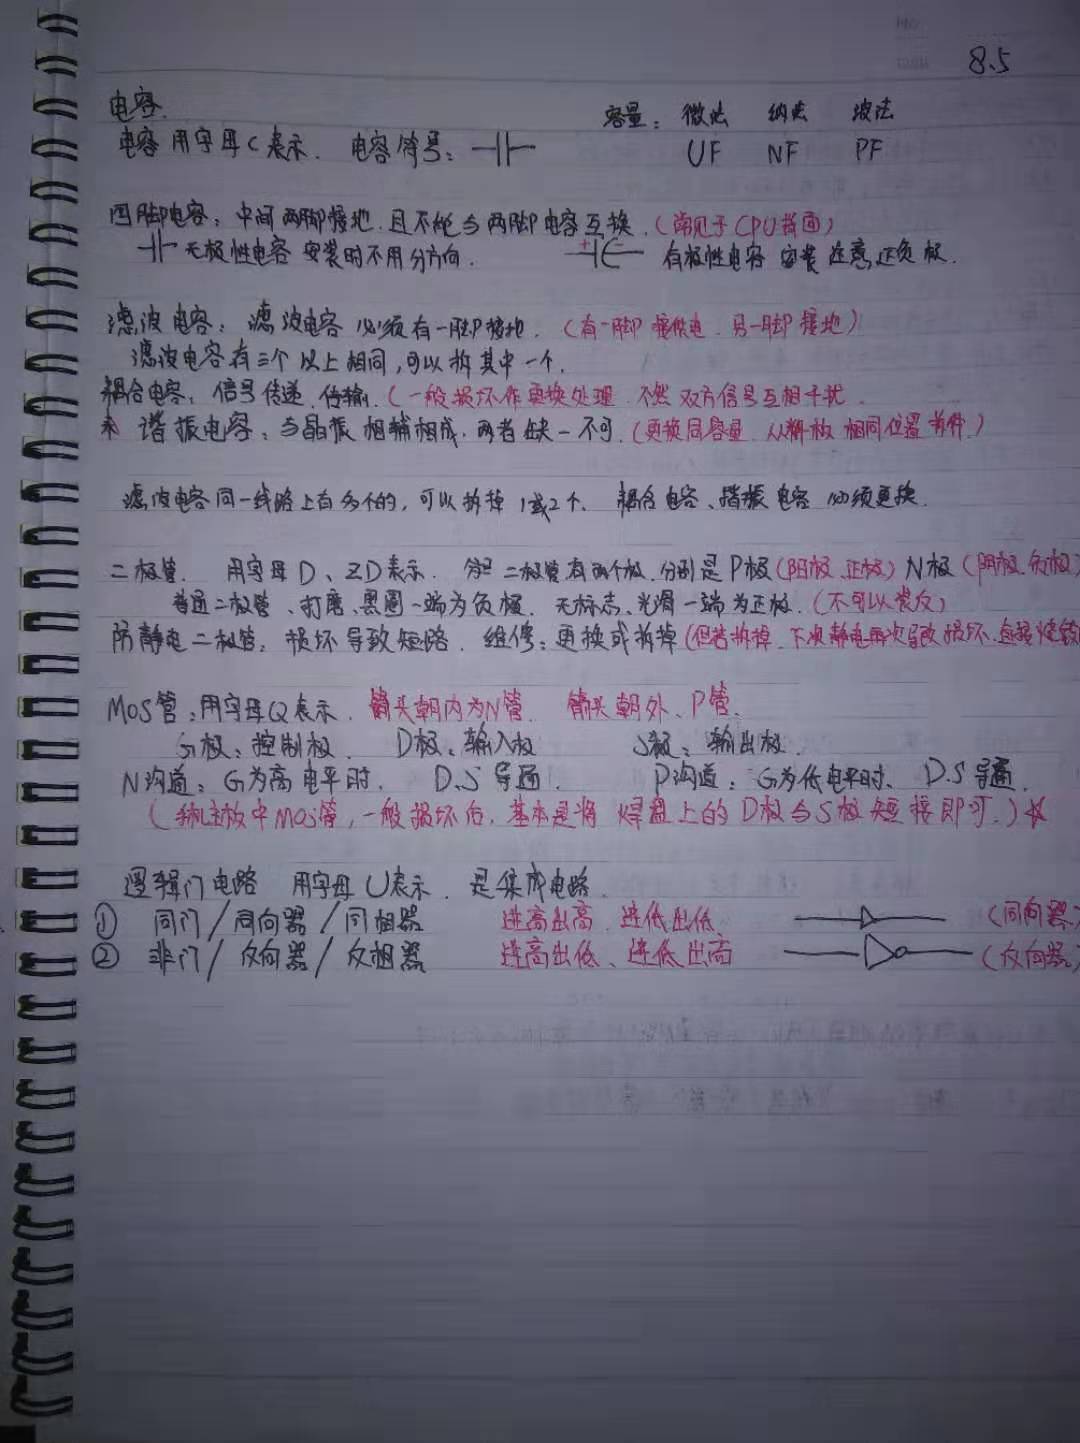 8.5
电容.
容量: 微法 纳法 波法
电容用字母C表示. 电容符号:
UF NF PF
四脚电容: 中间两脚接地.且不能与两脚电容互换.(常见于CPU背面)
无极性电容 安装时不用分方向.
+ - 有极性电容 安装注意正负极.
滤波电容: 滤波电容必须有一脚接地.(有一脚接供电.另一脚接地)
滤波电容有三个以上相同,可以拆其中一个.
耦合电容: 信号传递.传输.(一般损坏作更换处理.不然双方信号互相干扰.
谐振电容: 与晶振相辅相成.两者缺一不可.(更换同容量.从料板相同位置
滤波电容同一线路上有多个的,可以拆掉1或2个. 耦合电容、谐振电容必须更换.
二极管. 用字母D、ZD表示. 二极管有两个极.分别是P极(阳极.正极)N极(阴极.负极)
普通二极管、打磨、黑圈一端为负极. 无标志、光滑一端为正极.(不可以装反)
防静电二极管: 损坏导致短路. 维修: 更换或拆掉(但若拆掉.下次静电再次导致损坏.直接烧
MOS管:用字母Q表示. 箭头朝内为N管. 箭头朝外、P管.
G极: 控制极. D极: 输入极 S极: 输出极.
N沟道: G为高电平时. D.S导通. P沟道: G为低电平时. D.S导通.
(板中MOS管,一般损坏后,基本是将焊盘上的D极与S极短接即可.)
逻辑门电路 用字母U表示. 是集成电路.
① 同门/同向器/同相器 进高出高、进低出低. (同向器)
② 非门/反向器/反相器 进高出低、进低出高 (反向器)